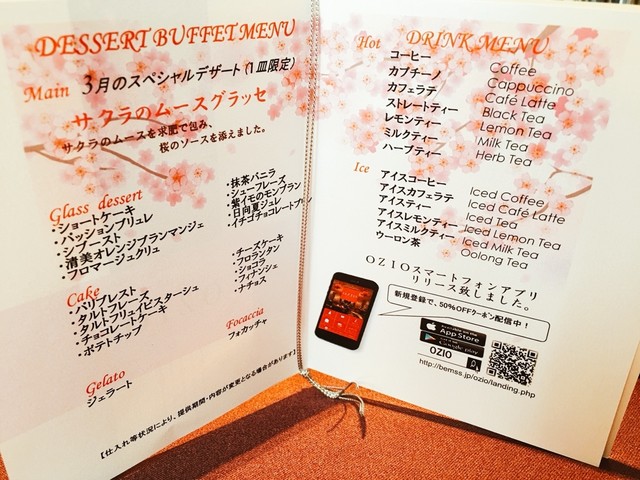 DESSERT BUFFET MENU
Main 3月のスペシャルデザート（1皿限定）
サクラのムースグラッセ
サクラのムースを求肥で包み、
桜のソースを添えました。
Glass dessert
・ショートケーキ
・パッションブリュレ
・シブースト
・清美オレンジブランマンジェ
・フロマージュクリュ
・抹茶バニラ
・シューフレーズ
・紫イモのモンブラン
・日向夏ジュレ
・イチゴチョコレートプリン
Cake
・パリブレスト
・タルトフレーズ
・タルトフリュイピスターシュ
・チョコレートケーキ
・ポテトチップ
・チーズケーキ
・フロランタン
・ショコラ
・フィナンシェ
・ナチョス
Focaccia
フォカッチャ
Gelato
ジェラート
【仕入れ等状況により、提供期間・内容が変更となる場合があります】
Hot DRINK MENU
コーヒー Coffee
カプチーノ Cappuccino
カフェラテ Café Latte
ストレートティー Black Tea
レモンティー Lemon Tea
ミルクティー Milk Tea
ハーブティー Herb Tea
Ice
アイスコーヒー Iced Coffee
アイスカフェラテ Iced Café Latte
アイスティー Iced Tea
アイスレモンティー Iced Lemon Tea
アイスミルクティー Iced Milk Tea
ウーロン茶 Oolong Tea
OZIOスマートフォンアプリ
リリース致しました。
新規登録で、50%OFFクーポン配信中！
App Store
Google play
OZIO
http://bemss.jp/ozio/landing.php